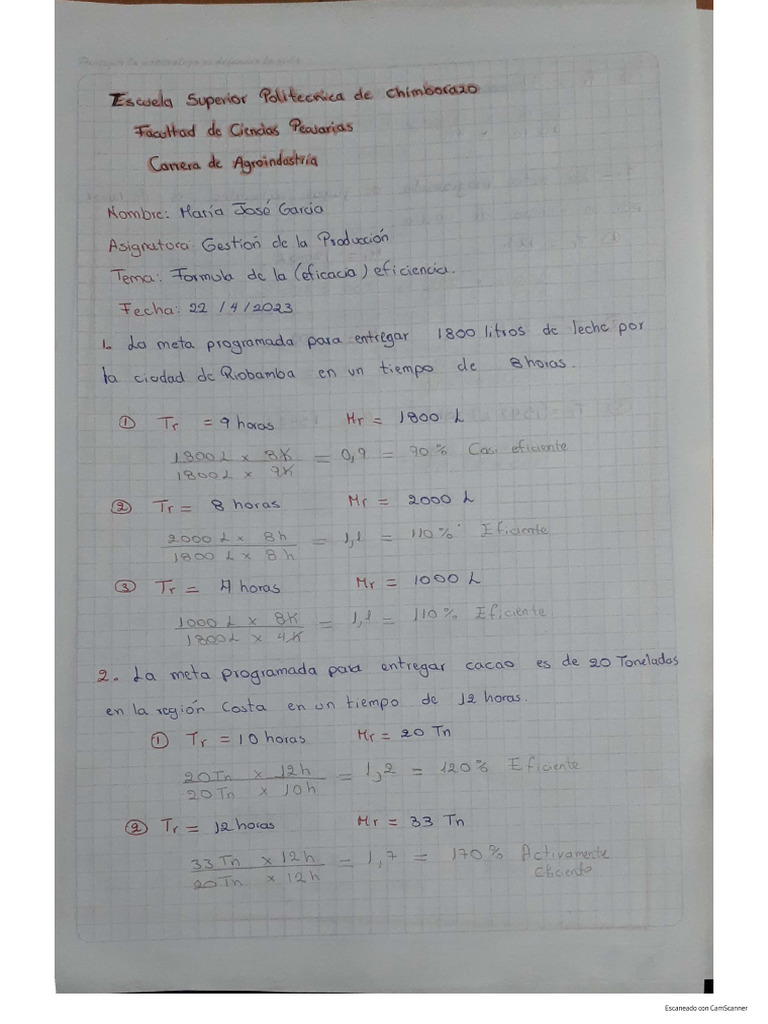 Escuela Superior Politecnica de Chimborazo
Facultad de Ciencias Pecuarias
Carrera de Agroindustria
Nombre: María José García
Asignatura: Gestión de la Producción
Tema: Formula de la (eficacia) eficiencia.
Fecha: 22 /4/2023
1. La meta programada para entregar 1800 litros de leche por
la ciudad de Riobamba en un tiempo de 8 horas.
① Tr = 9 horas Mr = 1800 L
1800 L x 8h
1800 L x 9h = 0,9 = 90% Casi eficiente
② Tr = 8 horas Mr = 2000 L
2000 L x 8h
1800 L x 8h = 1,1 = 110% Eficiente
③ Tr = 4 horas Mr = 1000 L
1000 L x 8h
1800 L x 4h = 1,1 = 110% Eficiente
2. La meta programada para entregar cacao es de 20 Toneladas
en la región Costa en un tiempo de 12 horas.
① Tr = 10 horas Mr = 20 Tn
20 Tn x 12h
20 Tn x 10h = 1,2 = 120% Eficiente
② Tr = 12 horas Mr = 33 Tn
33 Tn x 12h
20 Tn x 12h = 1,7 = 170% Activamente
Eficiente
Escaneado con CamScanner